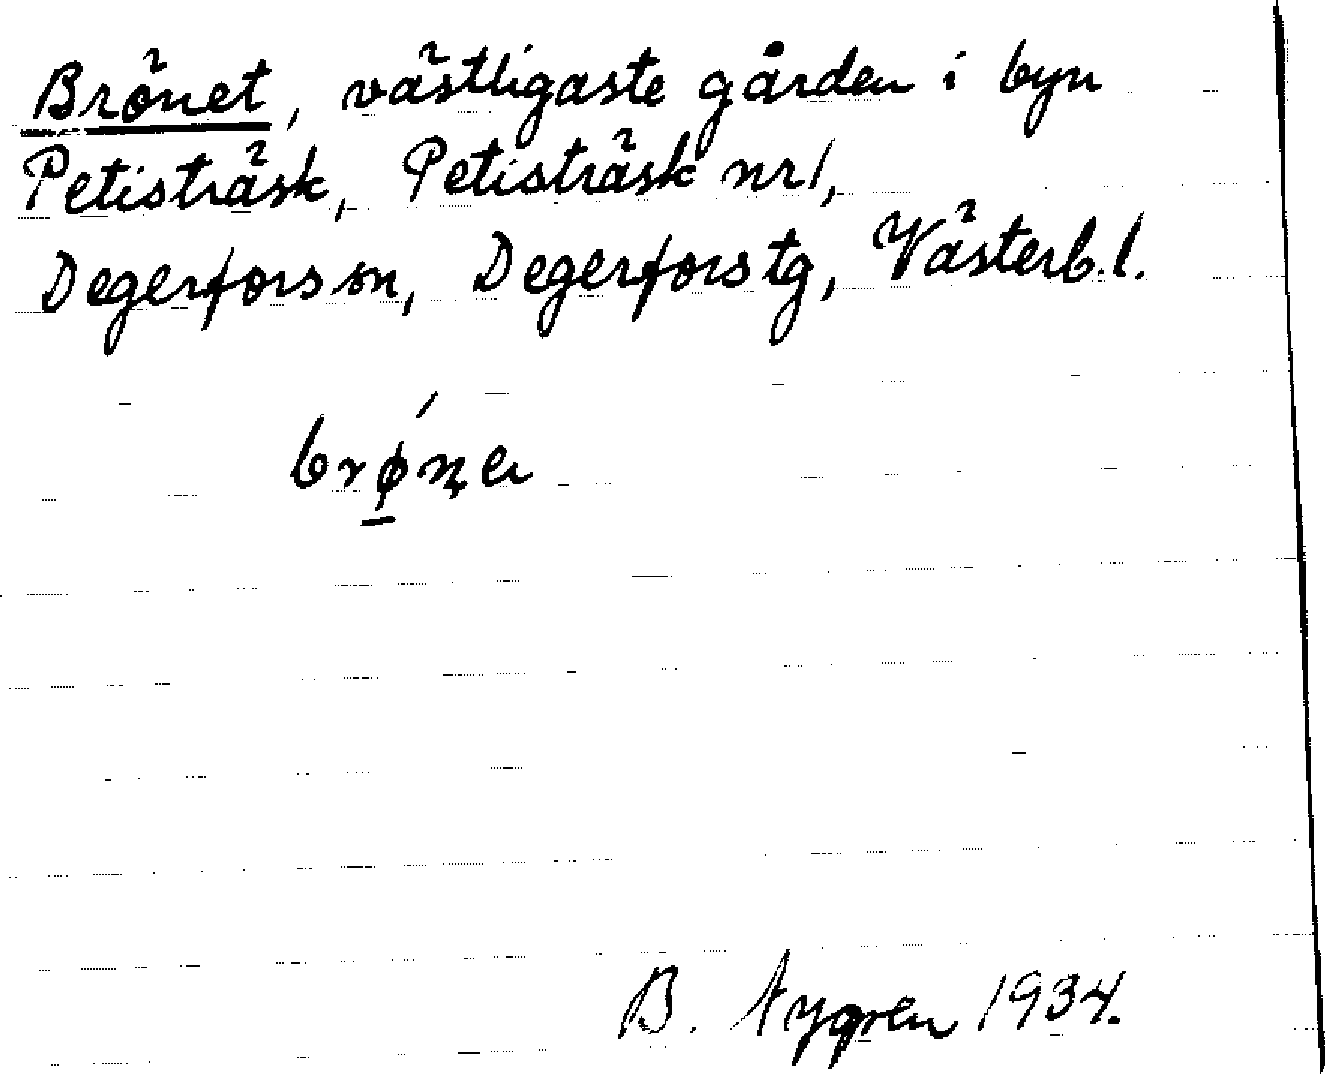 Brönet, västligaste gården i byn
Petisträsk, Petisträsk nr 1,
Degerfors sn, Degerfors tg, Västerb. l.
B. Nygren 1934.